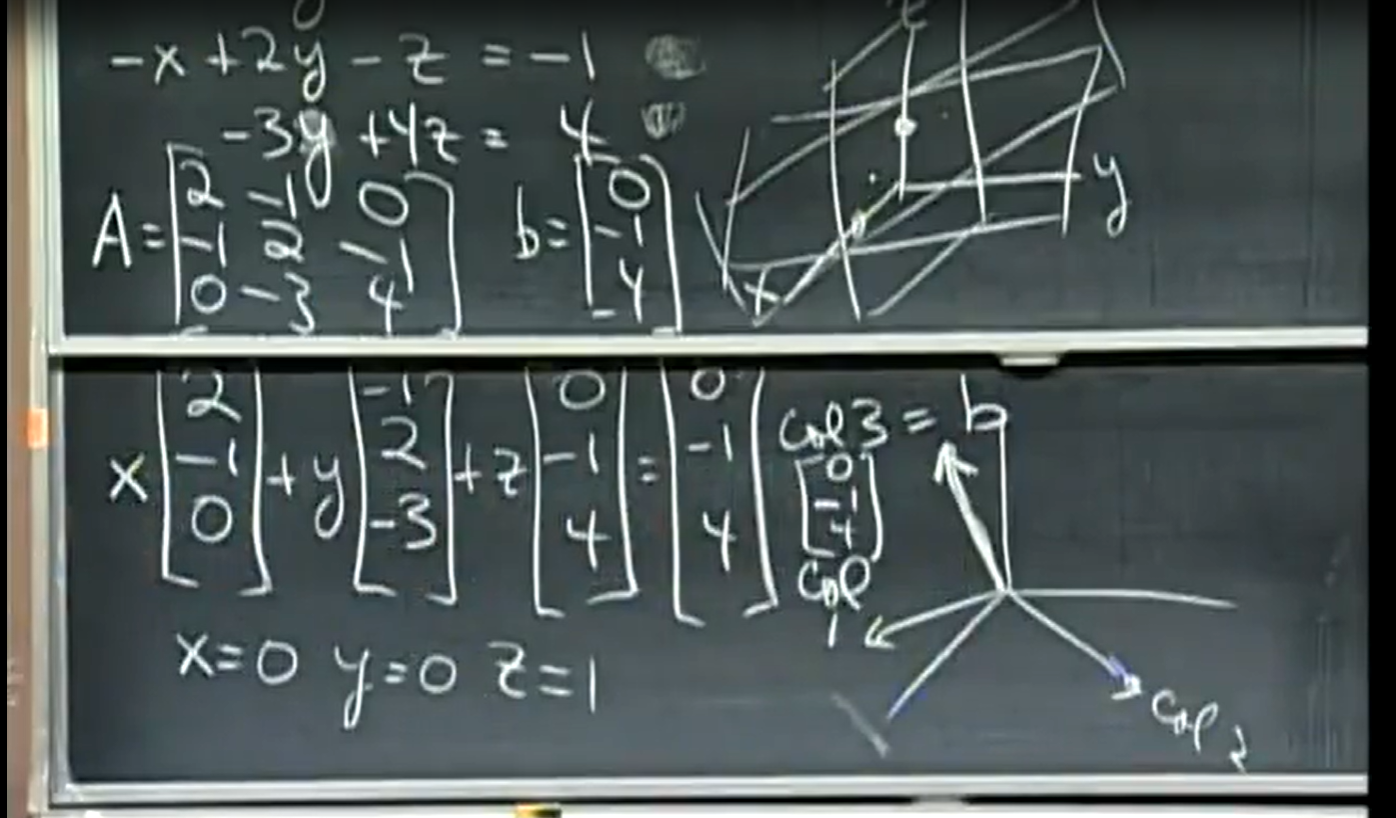 -x + 2y - z = -1
-3y + 4z = 4
A = [2 -1 0
-1 2 -1
0 -3 4]
b = [0
-1
4]
z
y
x
x [2 -1 0] + y [-1 2 -3] + z [0 -1 4] = [0 -1 4]
col 3 = b
[0
-1
4]
col
1
col 2
x=0 y=0 z=1